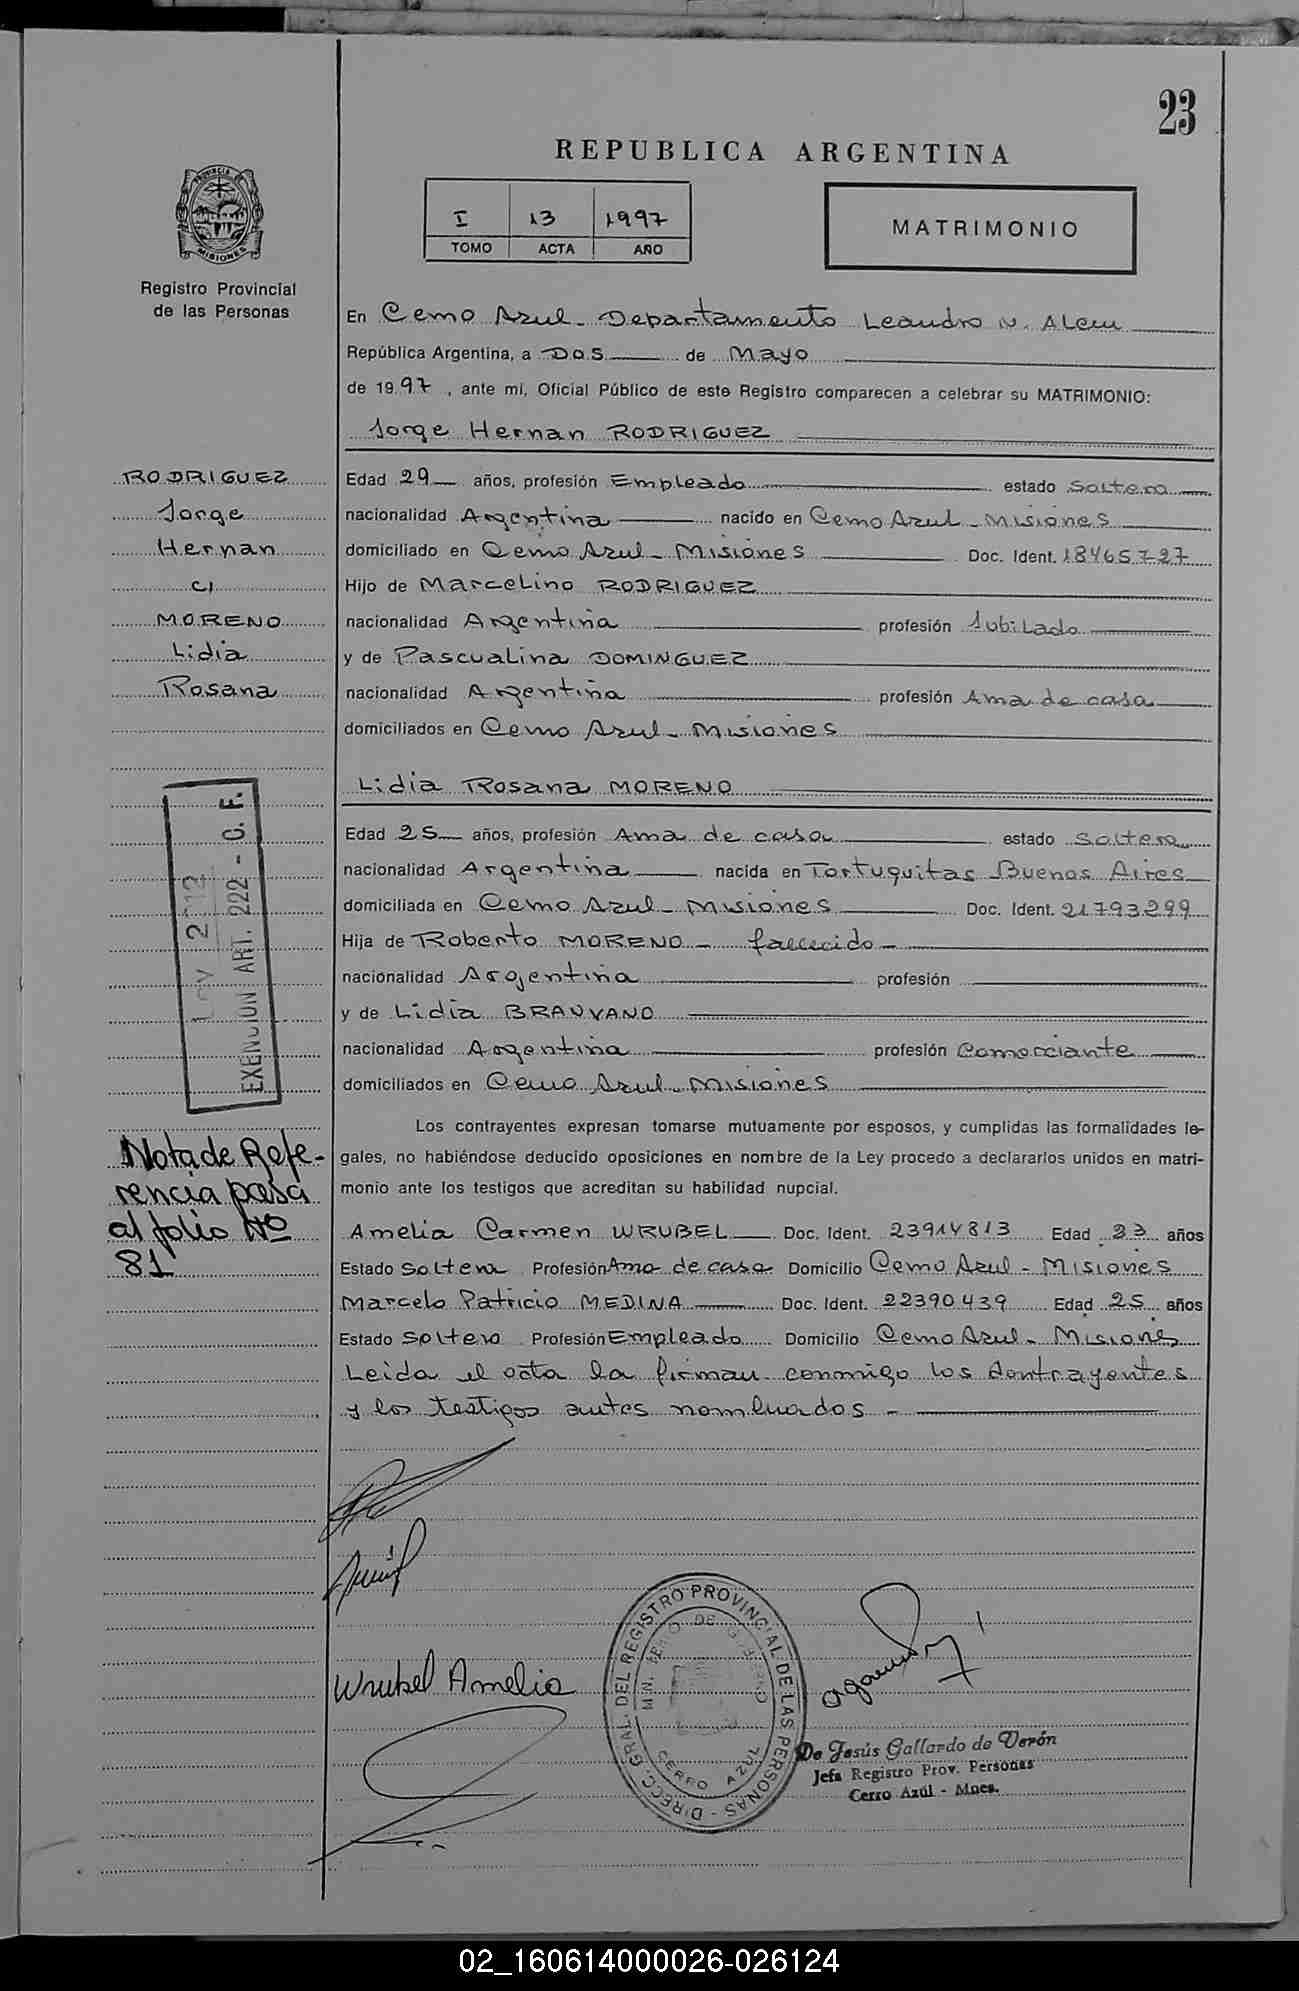 23
REPUBLICA ARGENTINA
PROVINCIA DE
MISIONES
Registro Provincial
de las Personas
I 13 1997
TOMO ACTA AÑO
MATRIMONIO
En Cerro Azul - Departamento Leandro N. Alem
República Argentina, a Dos de Mayo
de 1997, ante mí, Oficial Público de este Registro comparecen a celebrar su MATRIMONIO:
Jorge Hernan RODRIGUEZ
RODRIGUEZ
Jorge
Hernan
c/
MORENO
Lidia
Rosana
Edad 29 años, profesión Empleado estado Soltero
nacionalidad Argentina nacido en Cerro Azul - Misiones
domiciliado en Cerro Azul - Misiones Doc. Ident. 18465727
Hijo de Marcelino RODRIGUEZ
nacionalidad Argentina profesión Jubilado
y de Pascualina DOMINGUEZ
nacionalidad Argentina profesión Ama de casa
domiciliados en Cerro Azul - Misiones
Lidia Rosana MORENO
Edad 25 años, profesión Ama de casa estado Soltera
nacionalidad Argentina nacida en Tortuguitas Buenos Aires
domiciliada en Cerro Azul - Misiones Doc. Ident. 21793299
Hija de Roberto MORENO - fallecido -
nacionalidad Argentina profesión
y de Lidia BRANVANO
nacionalidad Argentina profesión Comerciante
domiciliados en Cerro Azul - Misiones
EXENCION ART. 222 - C. F.
Nota de Refe-
rencia pasa
al folio Nº
81
Los contrayentes expresan tomarse mutuamente por esposos, y cumplidas las formalidades le-
gales, no habiéndose deducido oposiciones en nombre de la Ley procedo a declararlos unidos en matri-
monio ante los testigos que acreditan su habilidad nupcial.
Amelia Carmen WRUBEL Doc. Ident. 23914813 Edad 23 años
Estado Soltera Profesión Ama de casa Domicilio Cerro Azul - Misiones
Marcelo Patricio MEDINA Doc. Ident. 22390439 Edad 25 años
Estado Soltero Profesión Empleado Domicilio Cerro Azul - Misiones
Leida el acta la firman conmigo los contrayentes
y los testigos antes nombrados -
Wrubel Amelia
DIRECC. GRAL. DEL REGISTRO PROVINCIAL DE LAS PERSONAS
CERRO AZUL
De Jesús Gallardo de Verón
Jefa Registro Prov. Personas
Cerro Azúl - Mnes.
02_160614000026-026124